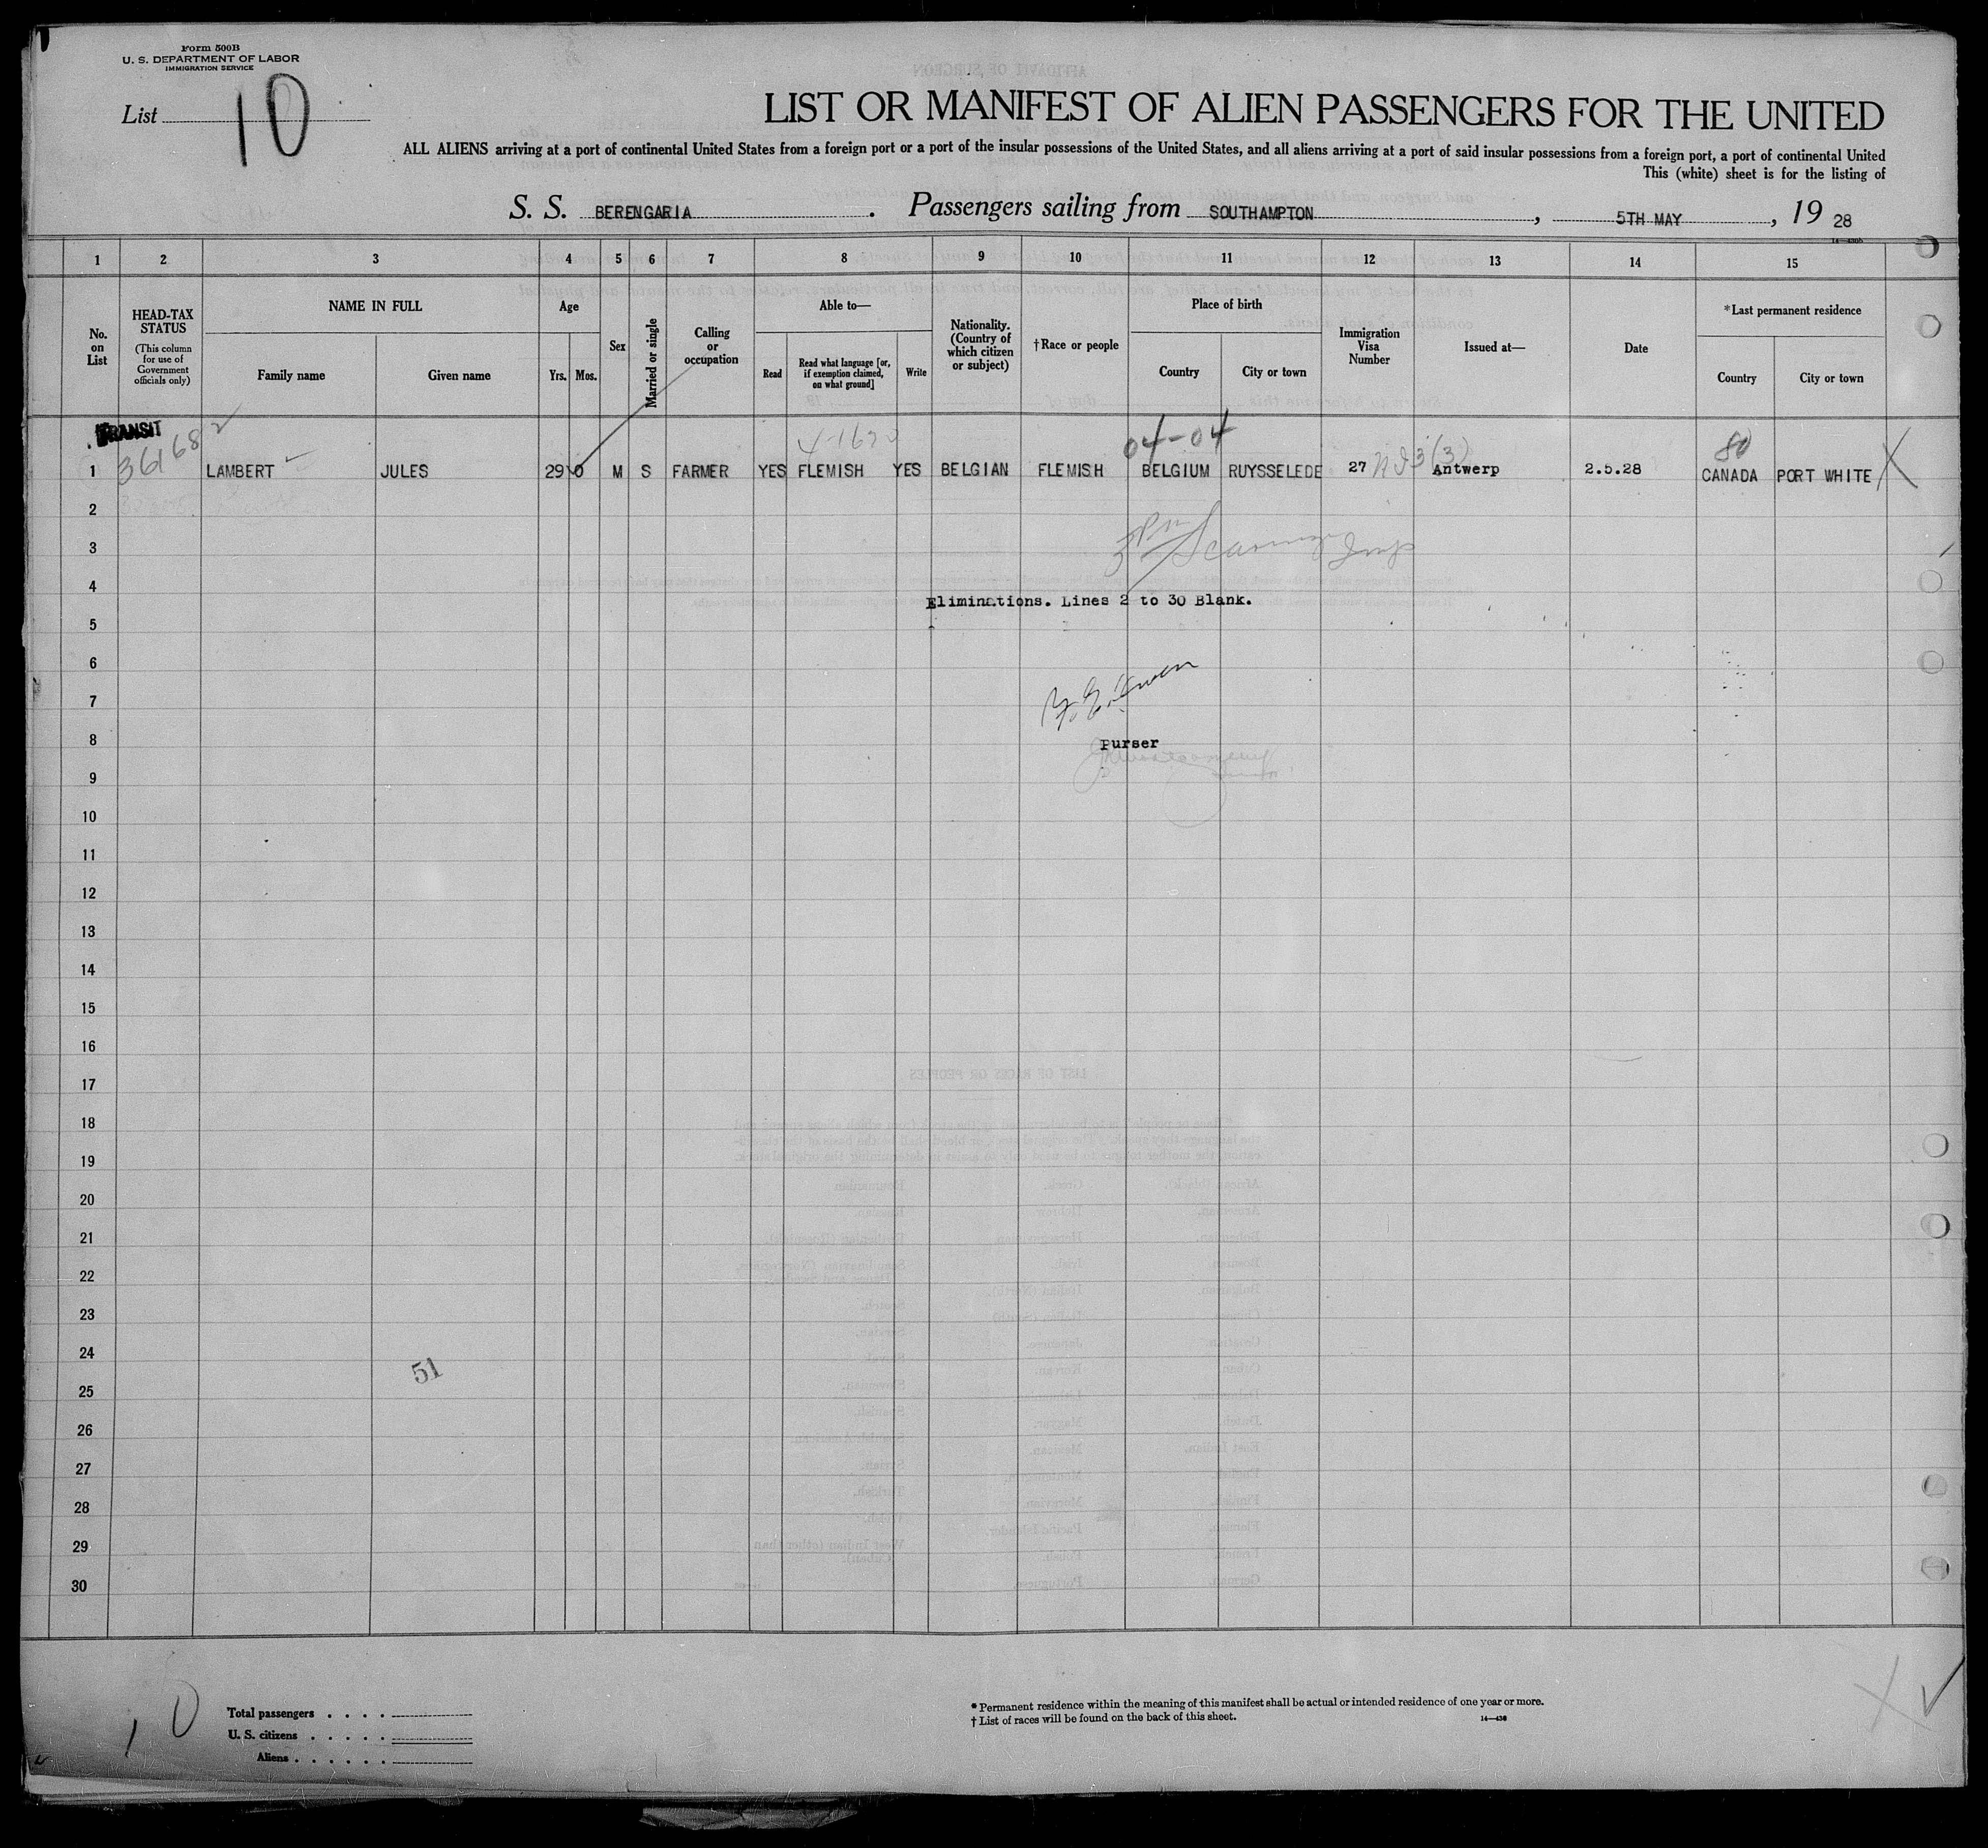 Form 500B
U. S. DEPARTMENT OF LABOR
IMMIGRATION SERVICE
List 10
LIST OR MANIFEST OF ALIEN PASSENGERS FOR THE UNITED
ALL ALIENS arriving at a port of continental United States from a foreign port or a port of the insular possessions of the United States, and all aliens arriving at a port of said insular possessions from a foreign port, a port of continental United
This (white) sheet is for the listing of
S. S. BERENGARIA. Passengers sailing from SOUTHAMPTON, 5TH MAY, 19 28
1 2 3 4 5 6 7 8 9 10 11 12 13 14 15
No. on List
HEAD-TAX STATUS
(This column for use of Government officials only)
NAME IN FULL
Family name
Given name
Age
Yrs.
Mos.
Sex
Married or single
Calling or occupation
Able to—
Read
Read what language [or, if exemption claimed, on what ground]
Write
Nationality. (Country of which citizen or subject)
†Race or people
Place of birth
Country
City or town
Immigration Visa Number
Issued at—
Date
*Last permanent residence
Country
City or town
TRANSIT
04-04
80
1 LAMBERT JULES 29 0 M S FARMER YES FLEMISH YES BELGIAN FLEMISH BELGIUM RUYSSELEDE 27 Antwerp 2.5.28 CANADA PORT WHITE
2
3
4
Eliminations. Lines 2 to 30 Blank.
5
6
7
8
Purser
9
10
11
12
13
14
15
16
17
18
19
20
21
22
23
24
51
25
26
27
28
29
30
10
Total passengers . . . .
U. S. citizens . . . . .
Aliens . . . . . .
* Permanent residence within the meaning of this manifest shall be actual or intended residence of one year or more.
† List of races will be found on the back of this sheet.
14—430